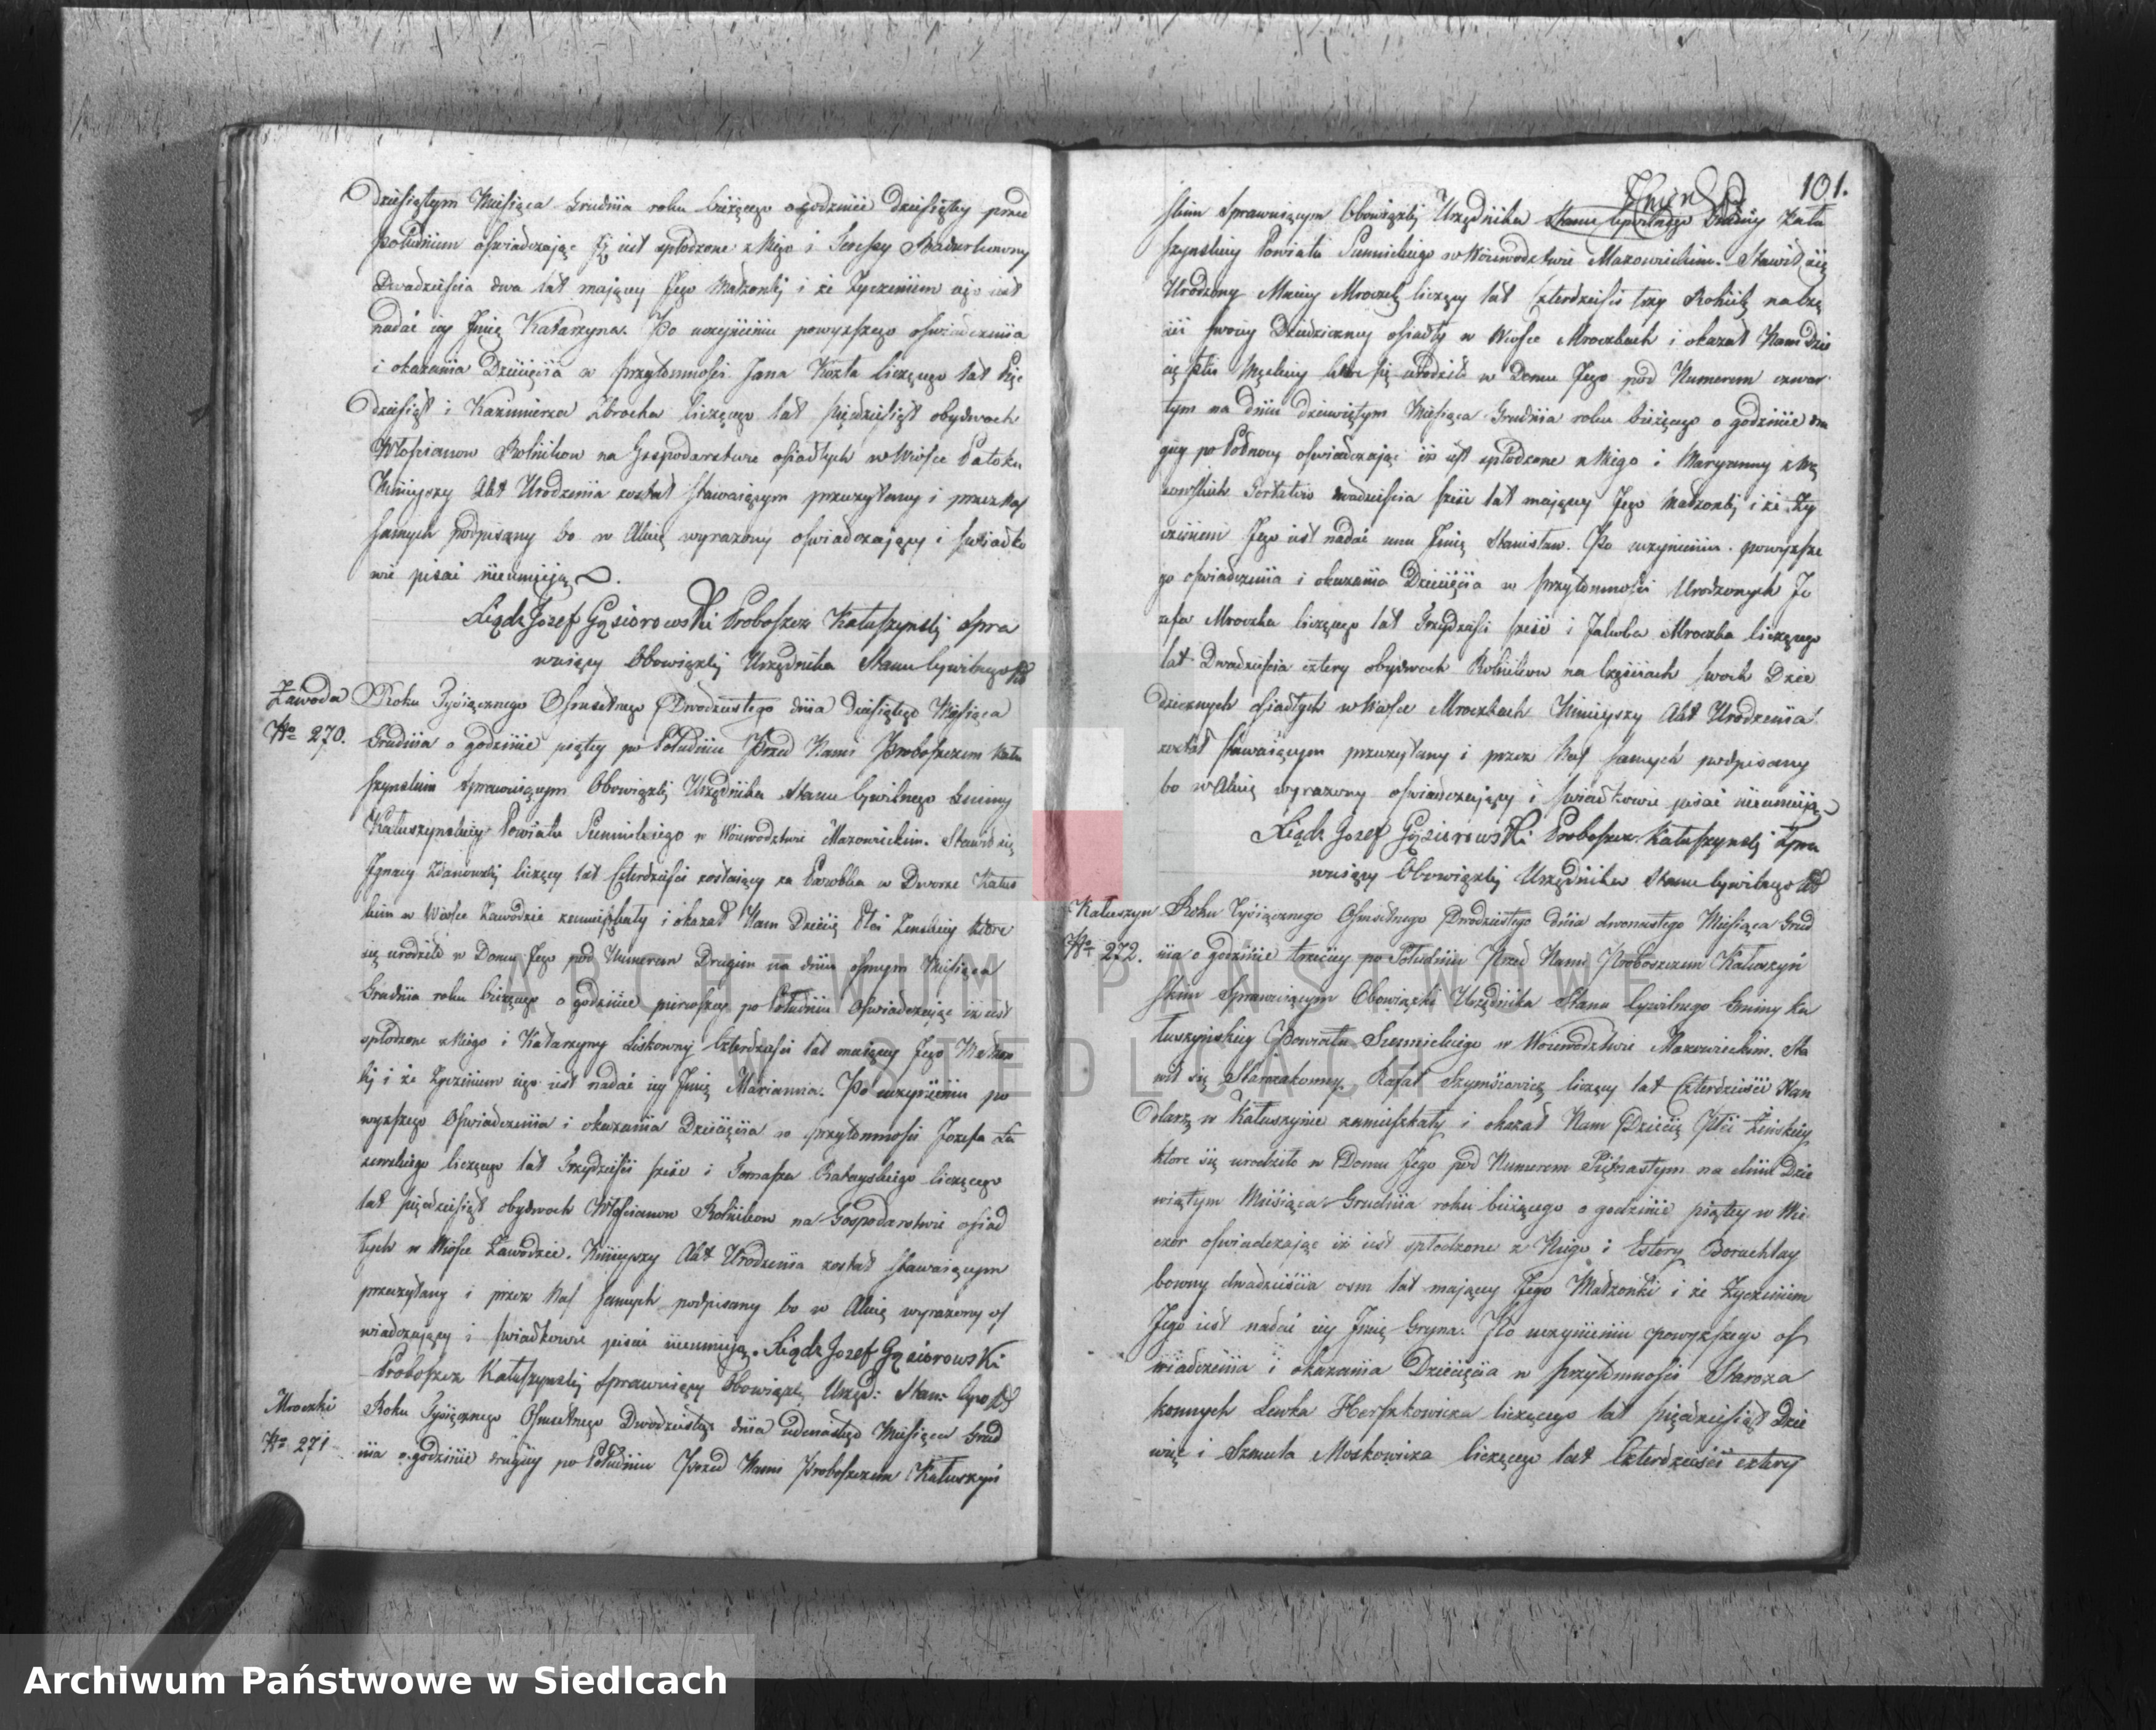 Dziesiątym Miesiąca Grudnia roku bieżącego o godzinie dziesiątey przed
południem oświadczaiąc Jż iest spłodzone z Niego i Teressy
Dwadzieścia dwa lat maiący Jego Małżonki i że życzeniem iego iest
nadać iey Jmię Katarzyna. Po uczynieniu powyższego oświadczenia
i okazania Dziecięcia w przytomności Jana Kozła liczącego lat Pięć
dziesiąt i Kazimierza Zbrocha liczącego lat pięćdziesiąt obydwoch
Włoscianow Rolnikow na Gospodarstwie osiadłych w Wiosce Patoku
Ninieyszy Akt Urodzenia został stawaiącym przeczytany i przez Nas
samych podpisany bo w Akcie wyrażony oświadczaiący i świadko
wie pisać nieumieią
Xiądz Jozef Gąsiorowski Proboszcz Kałuszynski spra
wuiący Obowiązki Urzędnika Stanu Cywilnego
Zawoda
No 270.
Roku Tysiącznego Osmsetnego Dwudziestego dnia dziesiątego Miesiąca
Grudnia o godzinie piątey po Południu Przed Nami Proboszczem Kału
szynskim sprawuiącym Obowiązki Urzędnika Stanu Cywilnego Gminy
Kałuszynskiey Powiatu Siennickiego w Woiewodztwie Mazowieckim. Stawił się
Jgnacy Zdanowski liczący lat Czterdzieści zostaiący za Parobka w Dworze Kałus
kim w Wiosce Zawodzie zamieszkały i okazał Nam Dziecię Płci Zenskiey ktore
się urodziło w Domu Jego pod Numerem Drugim na dniu osmym Miesiąca
Grudnia roku bieżącego o godzinie pierwszey po Południu Oświadczaiąc iż iest
spłodzone z Niego i Katarzyny Liskowny Czterdzieści lat maiący Jego Małżon
ki i że życzeniem iego iest nadać iey Jmię Marianna. Po uczynieniu po
wyższego Oświadczenia i okazania Dziecięcia w przytomności Jozefa
liczącego lat Trzydzieści sześć i Tomasza Ratayskiego liczącego
lat pięćdziesiąt obydwoch Włoscianow Rolnikow na Gospodarstwie osiad
łych w Wiosce Zawodzie. Ninieyszy Akt Urodzenia został stawaiącym
przeczytany i przez Nas samych podpisany bo w Akcie wyrażony oś
wiadczaiący i świadkowie pisać nieumieią. Xiądz Jozef Gąsiorowski
Proboszcz Kałuszynski sprawuiący Obowiązki Urzęd: Stanu Cywo
Mroczki
No 271
Roku Tysiącznego Osmsetnego Dwudziestego dnia iedenastego Miesiąca Grud
nia o godzinie drugiey po Południu Przed Nami Proboszczem Kałuszyń
101.
skim Sprawuiącym Obowiązki Urzędnika Stanu Cywilnego Gminy Kału
szynskiey Powiatu Siennickiego w Woiewodztwie Mazowieckim. Stawił się
Urodzony Maciey Mroczek liczący lat Czterdzieści trzy Rolnik na Czę
ści swoiey Dziedziczney osiadły w Wiosce Mroczkach i okazał Nam Dzie
cię płci Męskiey ktore się urodziło w Domu Jego pod Numerem czwar
tym na dniu dziewiątym Miesiąca Grudnia roku bieżącego o godzinie dru
giey po Północy oświadczaiąc iż iest spłodzone z Niego i Maryanny
dwadzieścia sześć lat maiący Jego Małżonki i że Ży
czeniem Jego iest nadać mu Jmię Stanisław. Po uczynieniu powyższe
go oświadczenia i okazania Dziecięcia w przytomności Urodzonych Jo
zefa Mroczka liczącego lat Trzydzieści sześć i Jakuba Mroczka liczącego
lat Dwadzieścia cztery obydwoch Rolnikow na Częściach swoich Dzie
dzicznych osiadłych w Wiosce Mroczkach Ninieyszy Akt Urodzenia
został stawaiącym przeczytany i przez Nas samych podpisany
bo w Akcie wyrażony oświadczaiący i świadkowie pisać nieumieią
Xiądz Jozef Gąsiorowski Proboszcz Kałuszynski Spra
wuiący Obowiązki Urzędnika Stanu Cywilnego
Kałuszyn
No 272.
Roku Tysiącznego Osmsetnego Dwudziestego dnia dwunastego Miesiąca Grud
nia o godzinie trzeciey po Południu Przed Nami Proboszczem Kałuszyń
skim Sprawuiącym Obowiązki Urzędnika Stanu Cywilnego Gminy Ka
łuszyńskiey Powiatu Siennickiego w Woiewodztwie Mazowieckim. Sta
wił się Starozakonny Rafał Szymsiowicz liczący lat Czterdzieści Han
dlarz w Kałuszynie zamieszkały i okazał Nam Dziecię Płci Żeńskiey
ktore się urodziło w Domu Jego pod Numerem Piętnastym na dniu Dzie
wiątym Miesiąca Grudnia roku bieżącego o godzinie piątey w Wie
czor oświadczaiąc iż iest spłodzone z Niego i Estery Boruchlay
bowny dwadzieścia osm lat maiący Jego Małżonki i że Życzeniem
Jego iest nadać iey Jmię Gryna. Po uczynieniu powyższego oś
wiadczenia i okazania Dziecięcia w przytomności Staroza
konnych Lewka Herszkowicza liczącego lat pięćdziesiąt Dzie
więć i Szmula Moszkowicza liczącego lat Czterdzieści cztery
ARCHIWUM PAŃSTWOWE
W SIEDLCACH
Archiwum Państwowe w Siedlcach